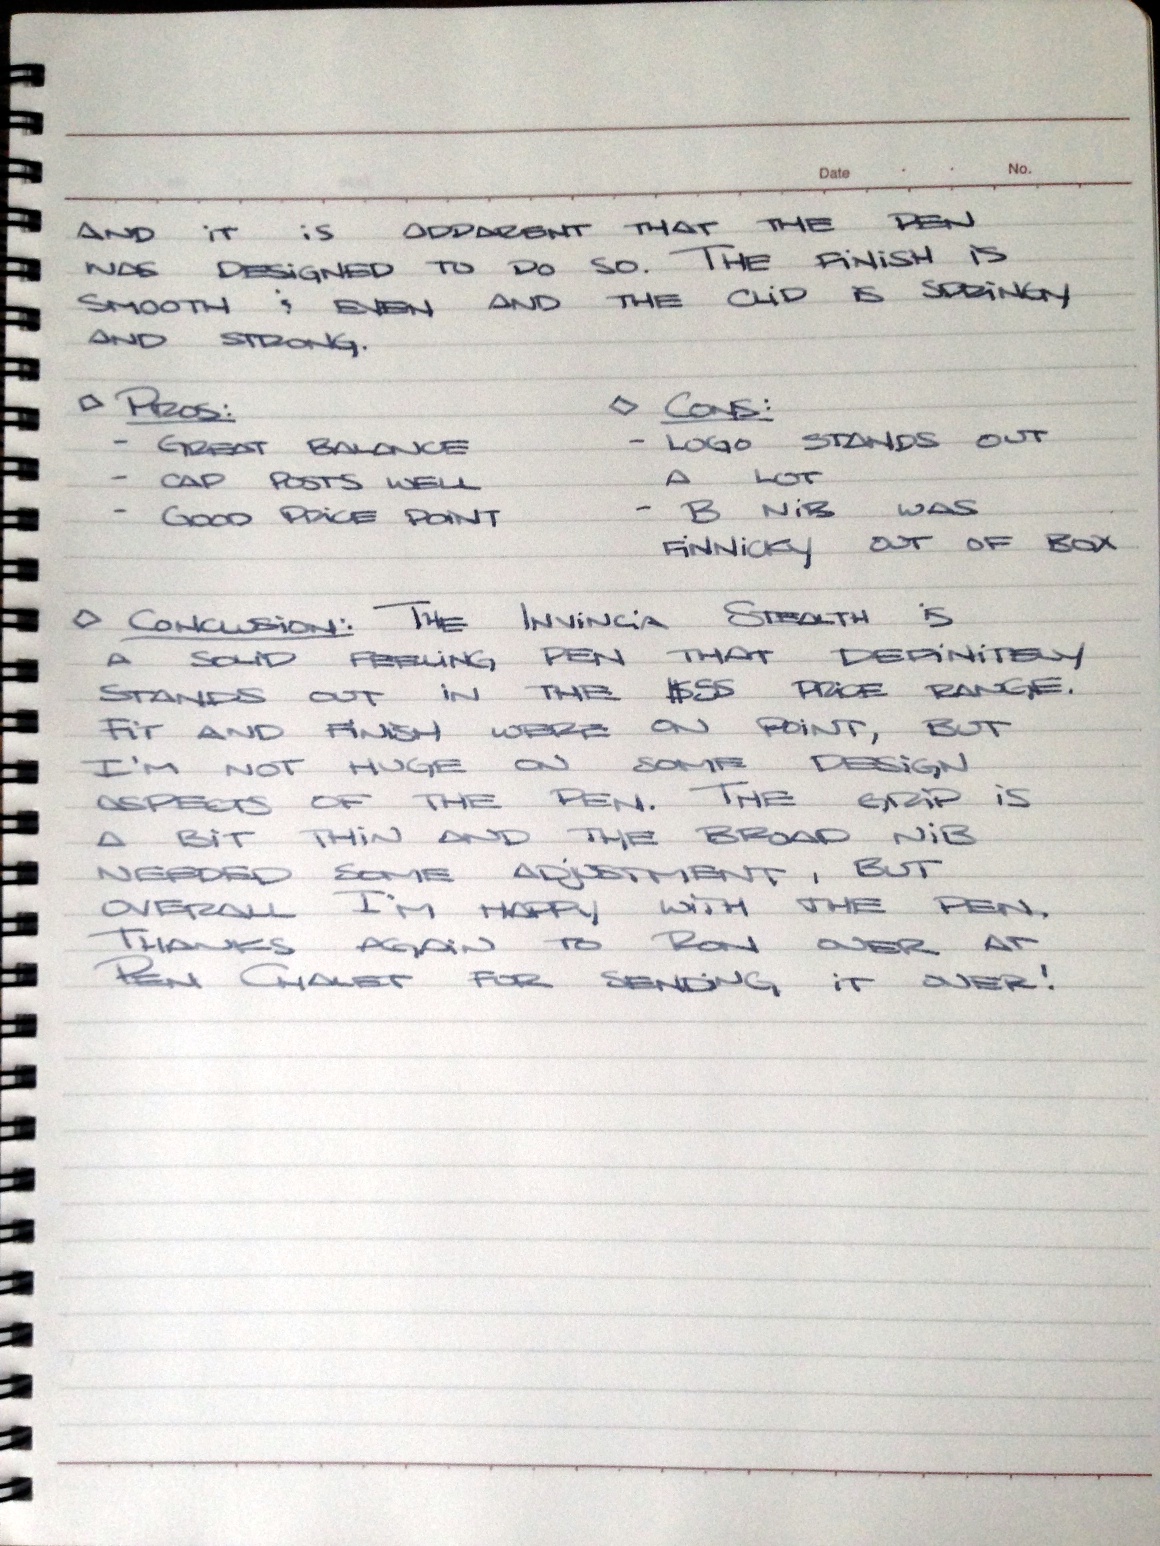 Date . . No.
AND iT iS APPARENT THAT THE PEN
WAS DESiGNED TO DO SO. THE FiNiSH iS
SMOOTH & EVEN AND THE CLiP iS SPRiNGY
AND STRONG.
◇ PROS:
- GREAT BALANCE
- CAP POSTS WELL
- GOOD PRiCE POiNT
◇ CONS:
- LOGO STANDS OUT
A LOT
- B NiB WAS
FiNNiCKY OUT OF BOX
◇ CONCLUSiON: THE INViNCiA STEALTH iS
A SOLiD FEELiNG PEN THAT DEFiNiTELY
STANDS OUT iN THE $55 PRiCE RANGE.
FiT AND FiNiSH WERE ON POiNT, BUT
I'M NOT HUGE ON SOME DESiGN
ASPECTS OF THE PEN. THE GRiP iS
A BiT THiN AND THE BROAD NiB
NEEDED SOME ADjUSTMENT, BUT
OVERALL I'M HAPPY WiTH THE PEN.
THANKS AGAiN TO RON OVER AT
PEN CHALET FOR SENDiNG iT OVER!